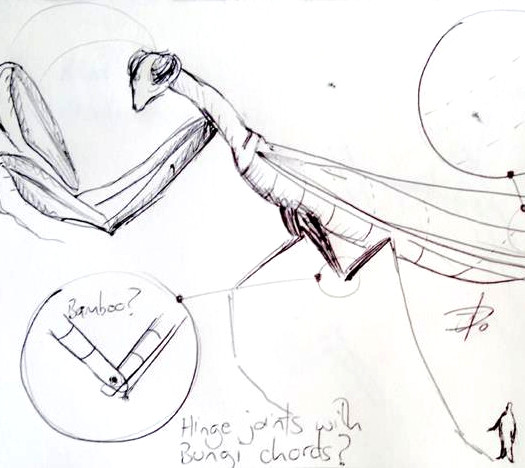 Bamboo?
Hinge joints with
Bungi chords?